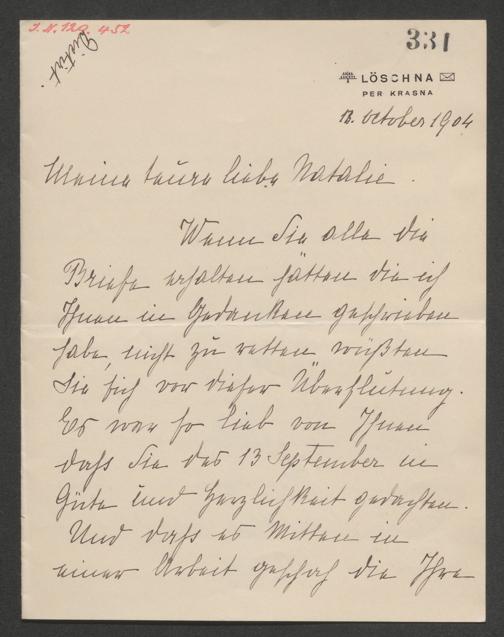 I.N. 129.452
Diktirt.
331
LÖSCHNA
PER KRASNA
12. October 1904
Meine teure liebe Natalie.
Wenn Sie alle die
Briefe erhalten hätten die ich
Ihnen in Gedanken geschrieben
habe, nicht zu retten wüßten
Sie sich vor dieser Überflutung.
Es war so lieb von Ihnen
daß Sie des 13 September in
Güte und Herzlichkeit gedachten.
Und daß es Mitten in
einer Arbeit geschah die Ihre